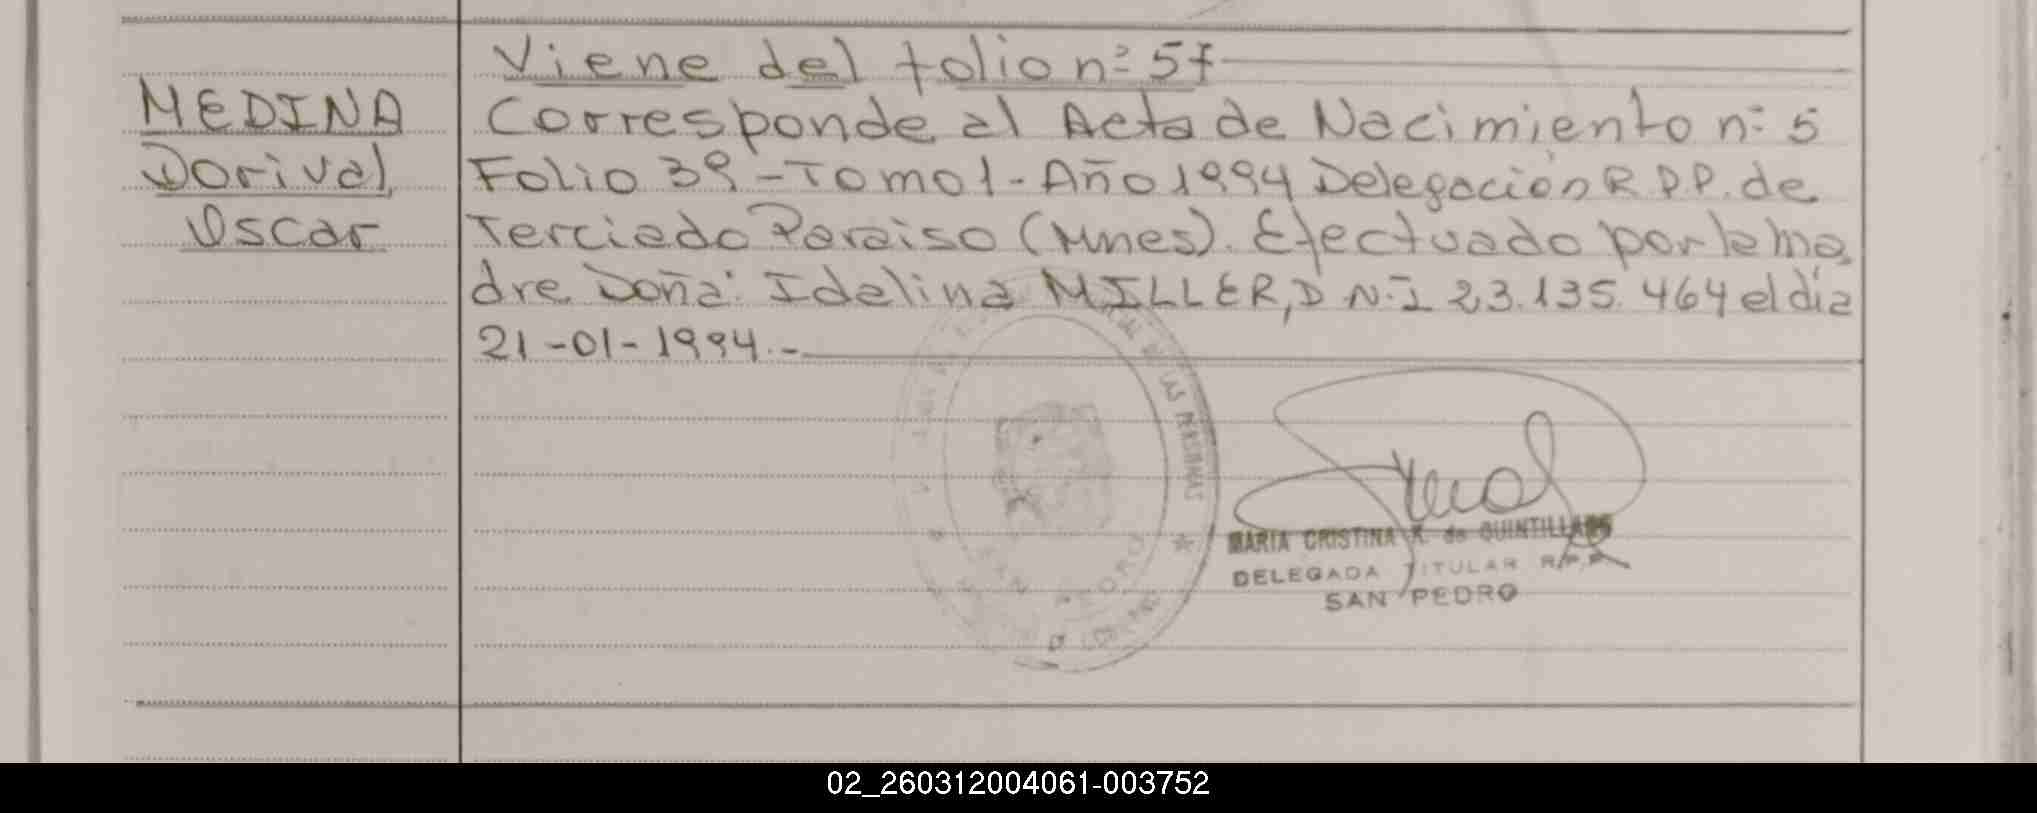 Viene del folio nº 57
MEDINA
Dorival
Oscar
Corresponde al Acta de Nacimiento nº 5
Folio 39 - Tomo 1 - Año 1994 Delegación R.P.P. de
Terciado Paraiso (Mnes). Efectuado por la ma
dre Doña: Idelina MILLER, D.N.I 23.135.464 el día
21-01-1994.-
LAS PERSONAS
SAN PEDRO
MARIA CRISTINA K. de QUINTILLANS
DELEGADA TITULAR R.P.P.
SAN PEDRO
02_260312004061-003752